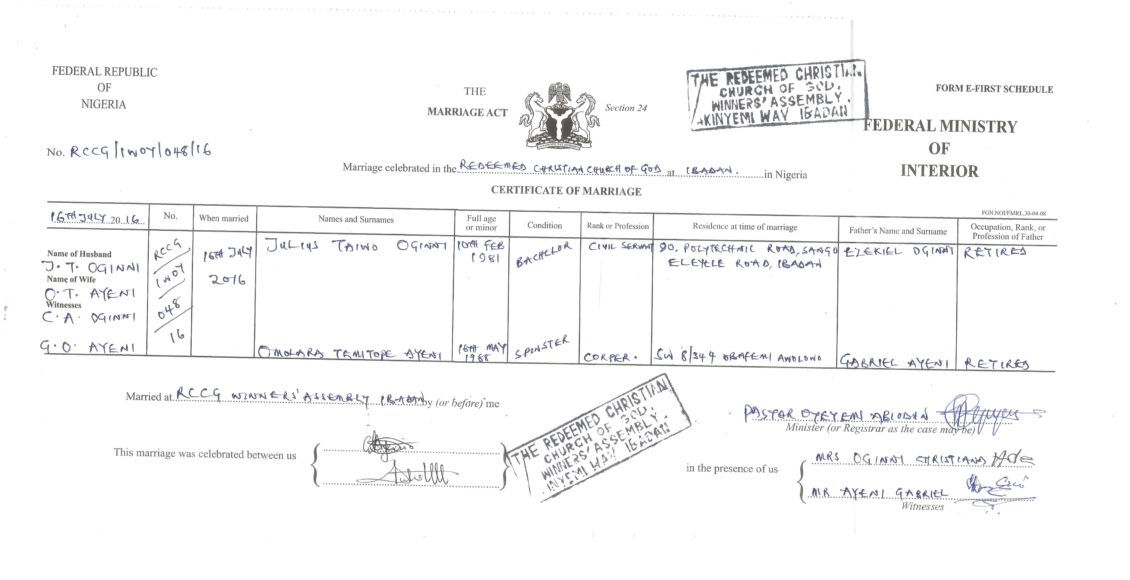 FEDERAL REPUBLIC
OF
NIGERIA
THE
MARRIAGE ACT
Section 24
THE REDEEMED CHRISTIAN
CHURCH OF GOD,
WINNERS' ASSEMBLY.
AKINYEMI WAY IBADAN
FORM E-FIRST SCHEDULE
FEDERAL MINISTRY
OF
INTERIOR
No. RCCG/IWOY/048/16
Marriage celebrated in the REDEEMED CHRISTIAN CHURCH OF GOD at IBADAN. in Nigeria
CERTIFICATE OF MARRIAGE
FGN.NOI/FMRI, 30-04-08
16TH JULY 2016 No. When married Names and Surnames Full age or minor Condition Rank or Profession Residence at time of marriage Father's Name and Surname Occupation, Rank, or Profession of Father
Name of Husband
J. T. OGINNI
Name of Wife
O. T. AYENI
Witnesses
C. A. OGINNI
G. O. AYENI
RCCG/IWOY/048/16
16TH JULY 2016
JULIUS TAIWO OGINNI 10TH FEB 1981 BACHELOR CIVIL SERVANT 90, POLYTECHNIC ROAD, SANGO ELEYELE ROAD, IBADAN EZEKIEL OGINNI RETIRED
OMOLARA TEMITOPE AYENI 16TH MAY 1988 SPINSTER CORPER. SW 8/349 OBAFEMI AWOLOWO GABRIEL AYENI RETIRED
Married at RCCG WINNERS' ASSEMBLY IBADAN by (or before) me
PASTOR OYEYEMI ABIODUN
Minister (or Registrar as the case may be)
This marriage was celebrated between us
THE REDEEMED CHRISTIAN
CHURCH OF GOD,
WINNERS' ASSEMBLY.
INYEMI WAY IBADAN
in the presence of us
MRS OGINNI CHRISTIANA
MR AYENI GABRIEL
Witnesses